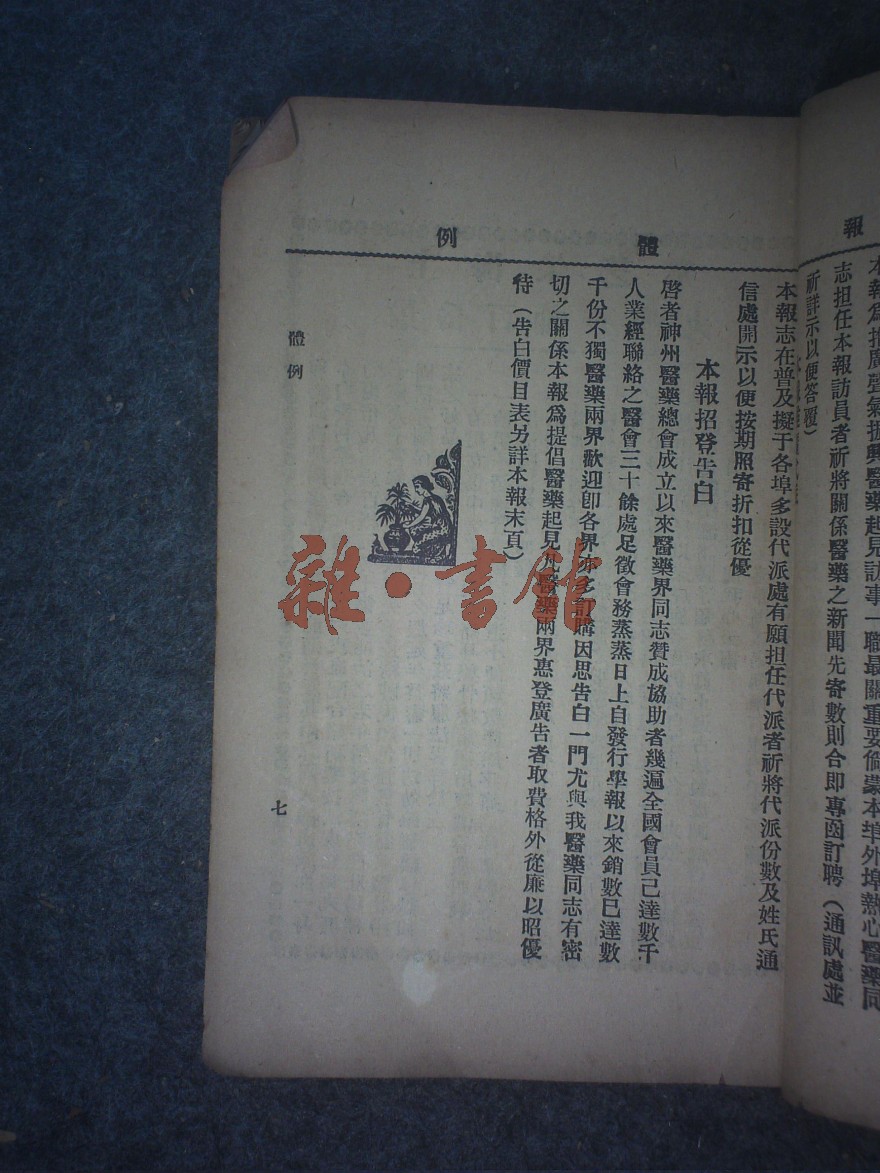 報
體例
本報爲推廣聲氣振興醫藥起見訪事一職最關重要倘蒙本埠外埠熱心醫藥同
志担任本報訪員者祈將關係醫藥之新聞先寄數則合即專函訂聘（通訊處並
祈詳示以便答覆）
本報志在普及擬于各埠多設代派處有願担任代派者祈將代派份數及姓氏通
信處開示以便按期照寄折扣從優
本報招登告白
啓者神州醫藥總會成立以來醫藥界同志贊成協助者幾遍全國會員已達數千
人業經聯絡之醫會三十餘處足徵會務蒸蒸日上自發行學報以來銷數已達數
千份不獨醫藥兩界歡迎卽各界亦多訂購因思告白一門尤與我醫藥同志有密
切之關係本報爲提倡醫藥起見凡醫藥兩界惠登廣告者取費格外從廉以昭優
待（告白價目表另詳本報末頁）
體例
七
雜·書館